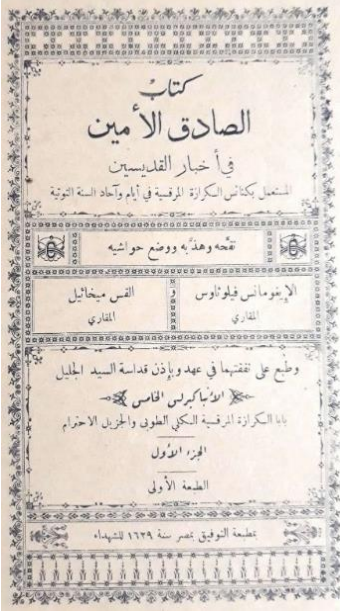 كتاب
الصادق الأمين
في أخبار القديسين
المستعمل بكنائس الكرازة المرقسية في أيام وآحاد السنة التوتية
نقحه وهذبه ووضع حواشيه
الايغومانس فيلوثاوس و القس ميخائيل
المقاري المقاري
وطبع على نفقتهما في عهد وبإذن قداسة السيد الجليل
الأنبا كيرلس الخامس
بابا الكرازة المرقسية الكلي الطوبى والجزيل الاحترام
الجزء الأول
الطبعة الأولى
بمطبعة التوفيق بمصر سنة ١٦٢٩ للشهداء